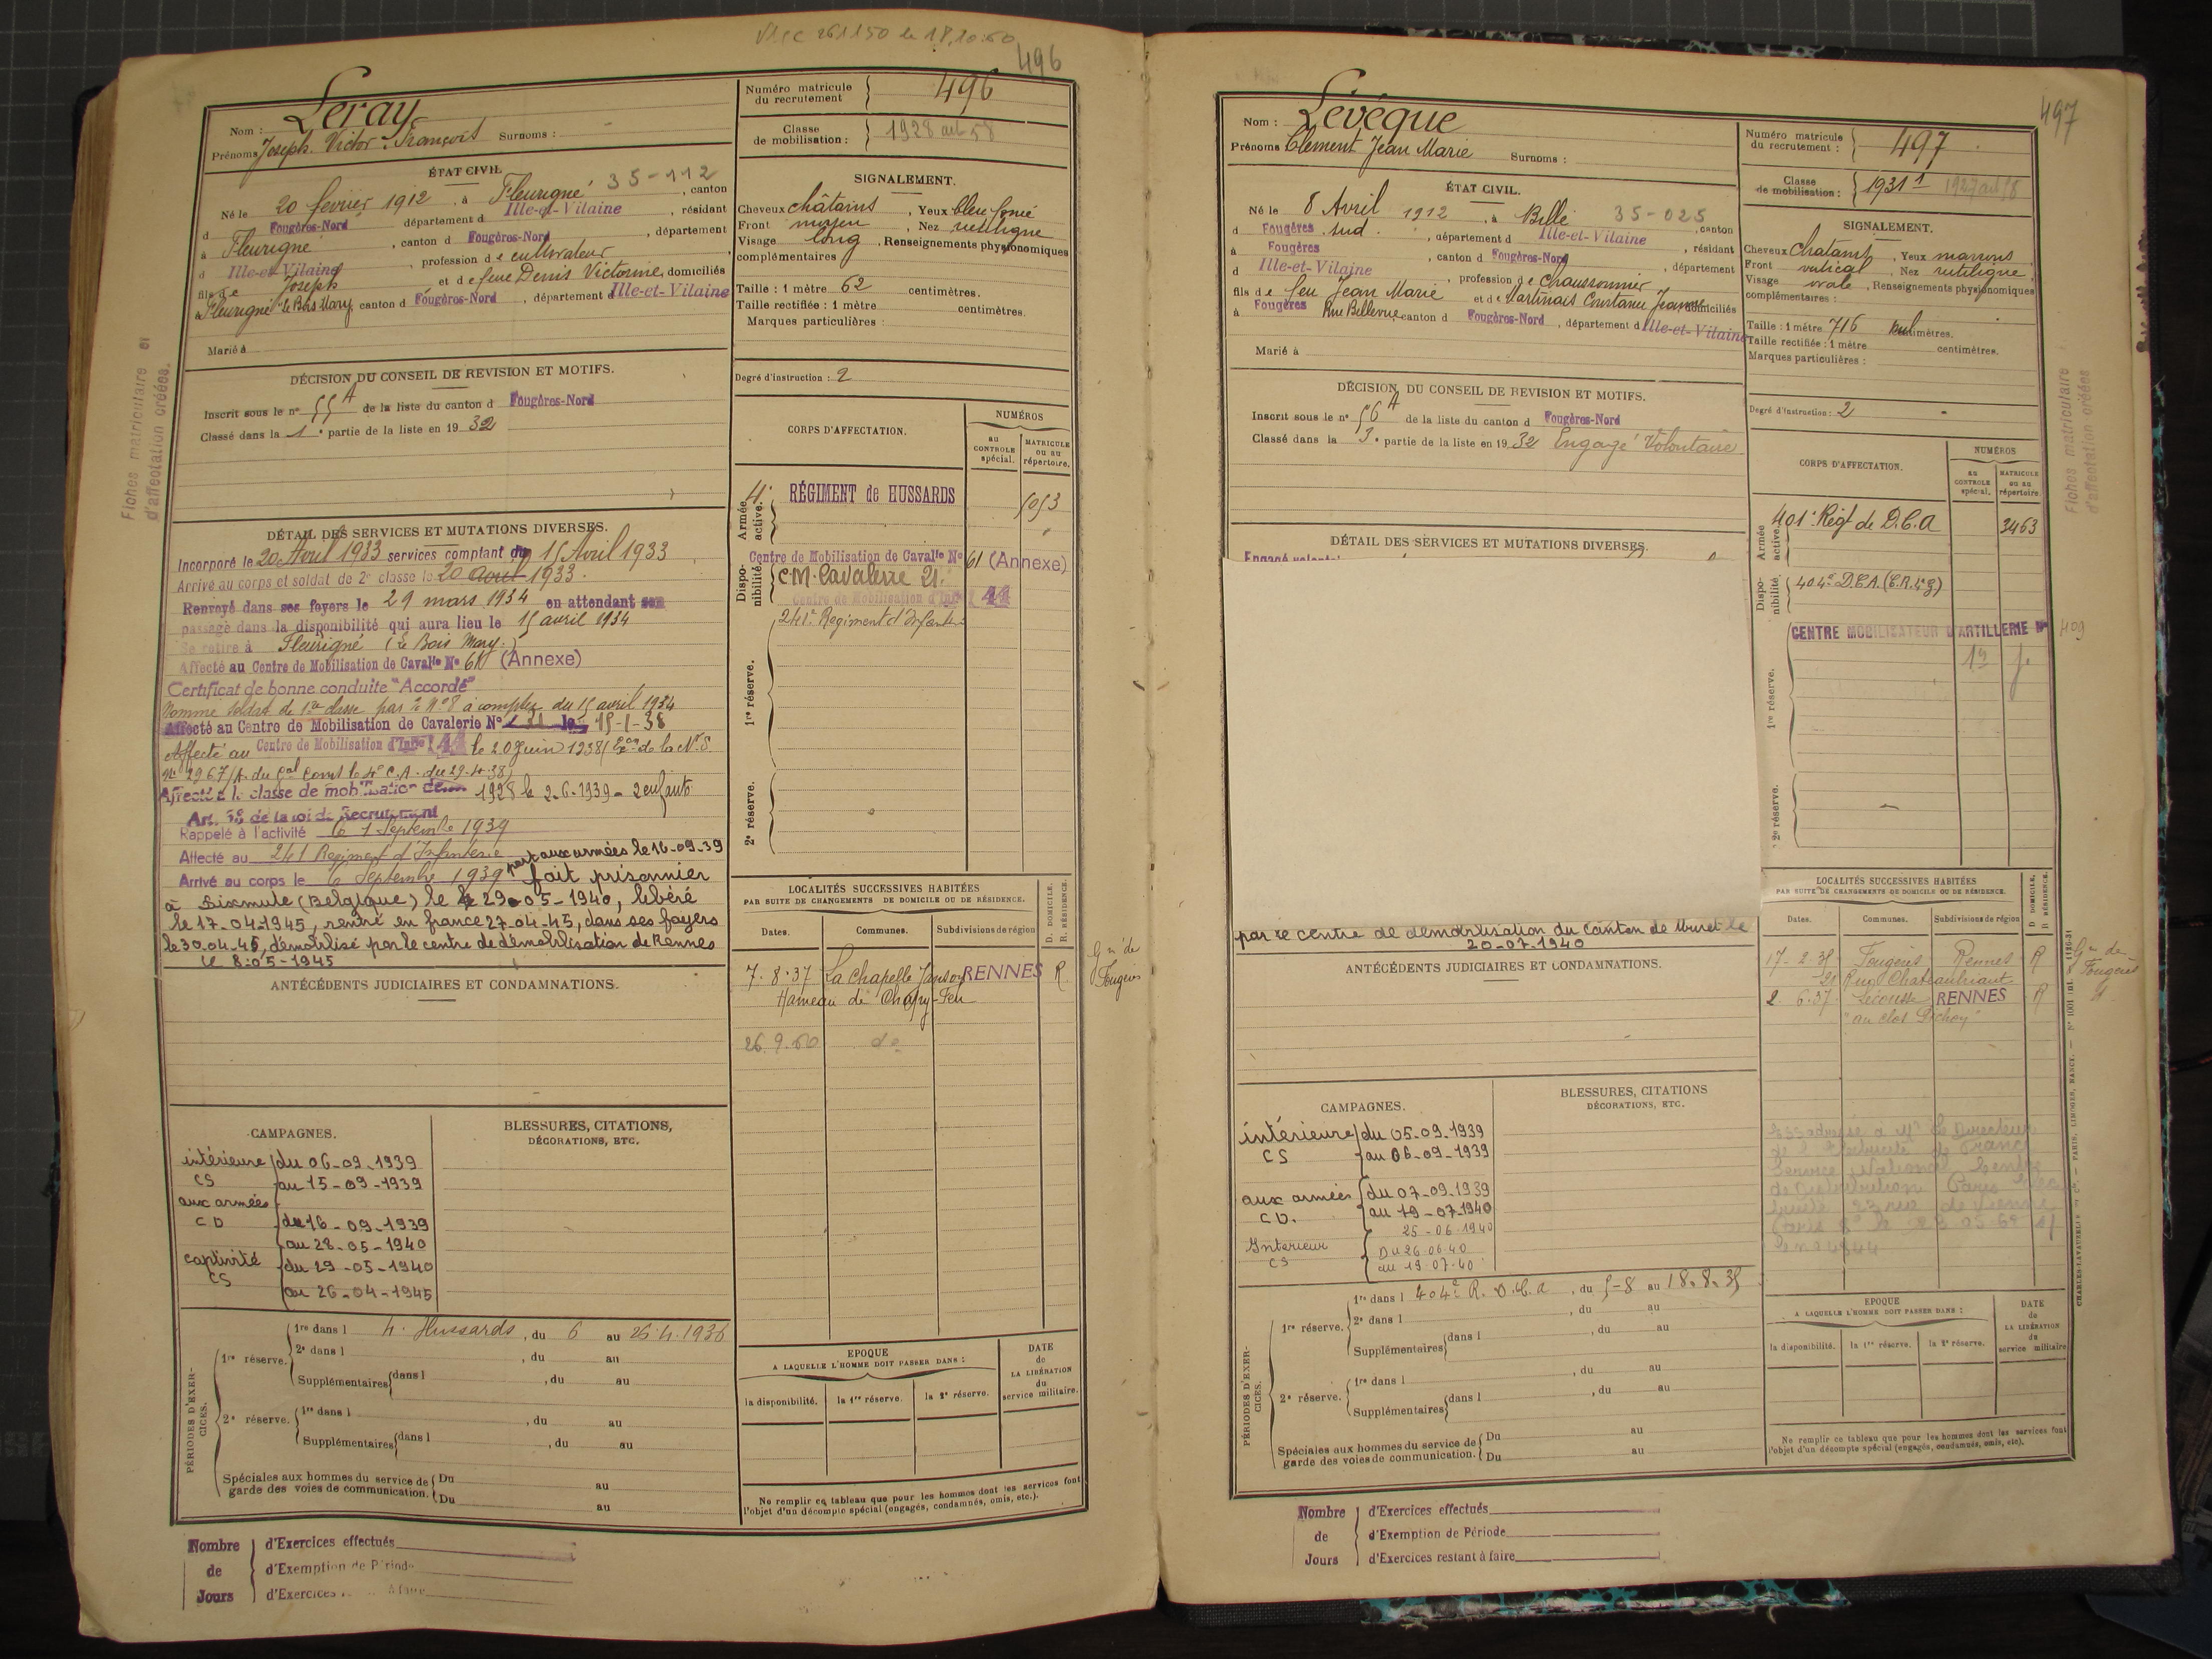 496
Nom : Leray
Prénoms Joseph Victor François Surnoms :
Numéro matricule du recrutement 496
Classe de mobilisation : 1928
ÉTAT CIVIL
35-112
Né le 20 février 1912, à Fleurigné, canton
d Fougères-Nord département d Ille-et-Vilaine, résidant
à Fleurigné, canton d Fougères-Nord, département
d Ille-et-Vilaine, profession de cultivateur
fils de Joseph et de feue Denis Victorine, domiciliés
à Fleurigné "Le Bois Mary, canton d Fougères-Nord, département d Ille-et-Vilaine
Marié à
SIGNALEMENT.
Cheveux châtains, Yeux bleu foncé
Front moyen, Nez rectiligne
Visage long, Renseignements physionomiques
complémentaires :
Taille : 1 mètre 62 centimètres.
Taille rectifiée : 1 mètre centimètres.
Marques particulières :
Degré d'instruction : 2
DÉCISION DU CONSEIL DE REVISION ET MOTIFS.
Inscrit sous le n° 55 A de la liste du canton d Fougères-Nord
Classé dans la 1e partie de la liste en 1932
CORPS D'AFFECTATION.
NUMÉROS
AU CONTROLE spécial.
MATRICULE ou au répertoire.
Armée active.
4e RÉGIMENT de HUSSARDS 1053
Disponibilité
Centre de Mobilisation de Cavalie N° 61 (Annexe)
C.M. Cavalerie 21.
Centre de Mobilisation d'Infie 41
241e Régiment d'Infanterie
1re réserve.
2e réserve.
DÉTAIL DES SERVICES ET MUTATIONS DIVERSES.
Incorporé le 20 Avril 1933 services comptant du 15 Avril 1933
Arrivé au corps et soldat de 2e classe le 20 avril 1933.
Renvoyé dans ses foyers le 29 mars 1934 en attendant son
passage dans la disponibilité qui aura lieu le 15 avril 1934
Se retire à Fleurigné (Le Bois Mary.)
Affecté au Centre de Mobilisation de Cavalie N° 61 (Annexe)
Certificat de bonne conduite "Accordé"
Nommé soldat de 1re classe par le N° 8 à compter du 15 avril 1934
Affecté au Centre de Mobilisation de Cavalerie N° 21 le 15-1-38
Affecté au Centre de Mobilisation d'Infie 41 le 20 Juin 1938 (Don de la N.S
N° 2967/A. du Gal Comt le 4e C.A. du 29.4.38)
Affecté à la classe de mobilisation de 1928 le 2.6.1939 - 2 enfants
Art. 58 de la loi de Recrutement
Rappelé à l'activité le 1 Septembre 1939
Affecté au 241 Régiment d'Infanterie
Arrivé au corps le 6 Septembre 1939 part aux armées le 16-09-39
fait prisonnier
à Dixmude (Belgique) le 29-05-1940, libéré
le 17-04-1945, rentré en france 27-04-45, dans ses foyers
le 30-04-45, démobilisé par le centre de démobilisation de Rennes
le 8-05-1945
ANTÉCÉDENTS JUDICIAIRES ET CONDAMNATIONS.
LOCALITÉS SUCCESSIVES HABITÉES
PAR SUITE DE CHANGEMENTS DE DOMICILE OU DE RÉSIDENCE.
Dates. Communes. Subdivisions de région D. DOMICILE. R. RÉSIDENCE.
7.8.37 La Chapelle Janson RENNES R
Hameau de
Gn de Fougères
26.9.60 do
CAMPAGNES.
BLESSURES, CITATIONS, DÉCORATIONS, ETC.
intérieure du 06-09-1939
CS au 15-09-1939
aux armées
CD du 16-09-1939
au 28-05-1940
captivité du 29-05-1940
CS
au 26-04-1945
PÉRIODES D'EXERCICES.
1re réserve. 1re dans l 4. Hussards, du 6 au 26.4.1936
2e dans l, du au
Supplémentaires dans l, du au
2e réserve. 1re dans l, du au
Supplémentaires dans l, du au
Spéciales aux hommes du service de garde des voies de communication. Du au
Du au
EPOQUE
A LAQUELLE L'HOMME DOIT PASSER DANS :
la disponibilité. la 1re réserve. la 2e réserve.
DATE de LA LIBÉRATION du service militaire.
Ne remplir ce tableau que pour les hommes dont les services font
l'objet d'un décompte spécial (engagés, condamnés, omis, etc.).
Nombre de Jours
d'Exercices effectués
d'Exemption de Période
d'Exercices
Fiches matriculaire et
d'affectation créées.
497
Nom : Lévêque
Prénoms Clément Jean Marie Surnoms :
Numéro matricule du recrutement : 497
Classe de mobilisation : 1931
ÉTAT CIVIL.
Né le 8 Avril 1912, à Billé 35-025, canton
d Fougères Sud., département d Ille-et-Vilaine, résidant
à Fougères, canton d Fougères-Nord, département
d Ille-et-Vilaine, profession de Chaussonnier
fils de feu Jean Marie et de Martinais Constance Jeanne, domiciliés
à Fougères Rue Bellevue, canton d Fougères-Nord, département d Ille-et-Vilaine
Marié à
SIGNALEMENT.
Cheveux châtains, Yeux marrons
Front vertical, Nez rectiligne
Visage ovale, Renseignements physionomiques
complémentaires :
Taille : 1 mètre 716 millimètres.
Taille rectifiée : 1 mètre centimètres.
Marques particulières :
Degré d'instruction : 2
DÉCISION DU CONSEIL DE REVISION ET MOTIFS.
Inscrit sous le n° 56 A de la liste du canton d Fougères-Nord
Classé dans la 3e partie de la liste en 1932 Engagé Volontaire
CORPS D'AFFECTATION.
NUMÉROS
AU CONTROLE spécial.
MATRICULE ou au répertoire.
Armée active.
401e Régt de D.C.A 3463
Disponibilité
404e D.C.A. (C.R.4e g)
CENTRE MOBILISATEUR D'ARTILLERIE N° 409
1re réserve.
2e réserve.
DÉTAIL DES SERVICES ET MUTATIONS DIVERSES.
par le centre de démobilisation du Canton de Muret le
20-07-1940
ANTÉCÉDENTS JUDICIAIRES ET CONDAMNATIONS.
LOCALITÉS SUCCESSIVES HABITÉES
PAR SUITE DE CHANGEMENTS DE DOMICILE OU DE RÉSIDENCE.
Dates. Communes. Subdivisions de région D DOMICILE. R RÉSIDENCE.
17-2.35 Fougères Rennes R
21 Rue Chateaubriant
2.6.37 Lécousse RENNES R
"au clos
Gn de Fougères
CAMPAGNES.
BLESSURES, CITATIONS DÉCORATIONS, ETC.
intérieure du 05-09-1939
CS au 06-09-1939
aux armées du 07-09-1939
CD. au 19-07-1940
25-06-1940
Intérieur Du 26.06.40
CS au 19.07.40
PÉRIODES D'EXERCICES.
1re réserve. 1re dans l 404e R.D.C.A, du 5-8 au 18.8.35
2e dans l, du au
Supplémentaires dans l, du au
2e réserve. 1re dans l, du au
Supplémentaires dans l, du au
Spéciales aux hommes du service de garde des voies de communication. Du au
Du au
EPOQUE
A LAQUELLE L'HOMME DOIT PASSER DANS :
la disponibilité. la 1re réserve. la 2e réserve.
DATE de LA LIBÉRATION du service militaire
Ne remplir ce tableau que pour les hommes dont les services font
l'objet d'un décompte spécial (engagés, condamnés, omis, etc).
Nombre de Jours
d'Exercices effectués
d'Exemption de Période
d'Exercices restant à faire
Fiches matriculaire
d'affectation créées